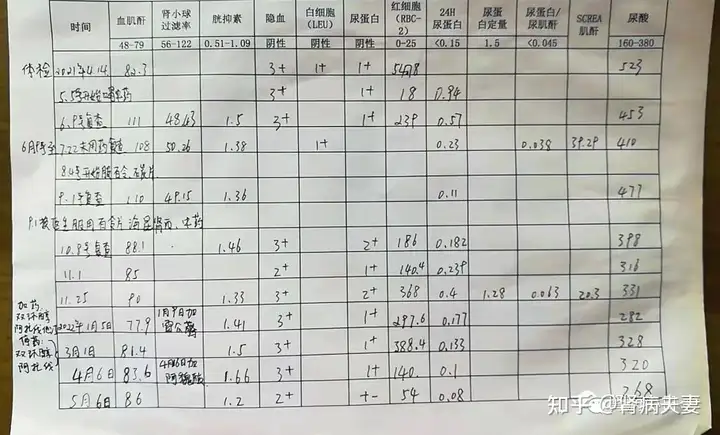 时间 血肌酐 肾小球过滤率 胱抑素 隐血 白细胞(LEU) 尿蛋白 红细胞(RBC-2) 24H尿蛋白 尿蛋白定量 尿蛋白/尿肌酐 SCREA肌酐 尿酸
48-79 56-122 0.51-1.09 阴性 阴性 阴性 0-25 <0.15 1.5 <0.045 160-380
体检 2021年4.14 82.3 3+ 1+ 1+ 523
5.5号开始 中药 3+ 1+ 18 0.94
6.9号复查 111 48.43 1.5 3+ 1+ 239 0.57 453
6月9号至7.22未用药复查 108 50.26 1.38 1+ 0.23 0.038 39.29 410
8.4号开始服百令
9.1号复查 110 49.15 1.36 0.11 477
9.1 医生服用百令片 海昆肾喜、中药
10.9号复查 88.1 1.46 3+ 2+ 186 0.182 398
11.1 85 2+ 1+ 140.4 0.239 316
11.25 90 1.33 3+ 2+ 368 0.4 1.28 0.063 20.3 331
加药:双环醇 阿托伐他汀
2022年1月5日 77.9 1月9日加雷公藤 1.41 3+ 1+ 297.6 0.177 282
停药:双环醇 阿托伐
3月1日 81.4 1.5 3+ 1+ 388.4 0.133 328
4月6日 83.6 4月16日加阿魏酸 1.66 3+ 1+ 140. 0.1 320
5月6日 86 1.2 2+ +- 54 0.08 268
知乎 @肾病夫妻